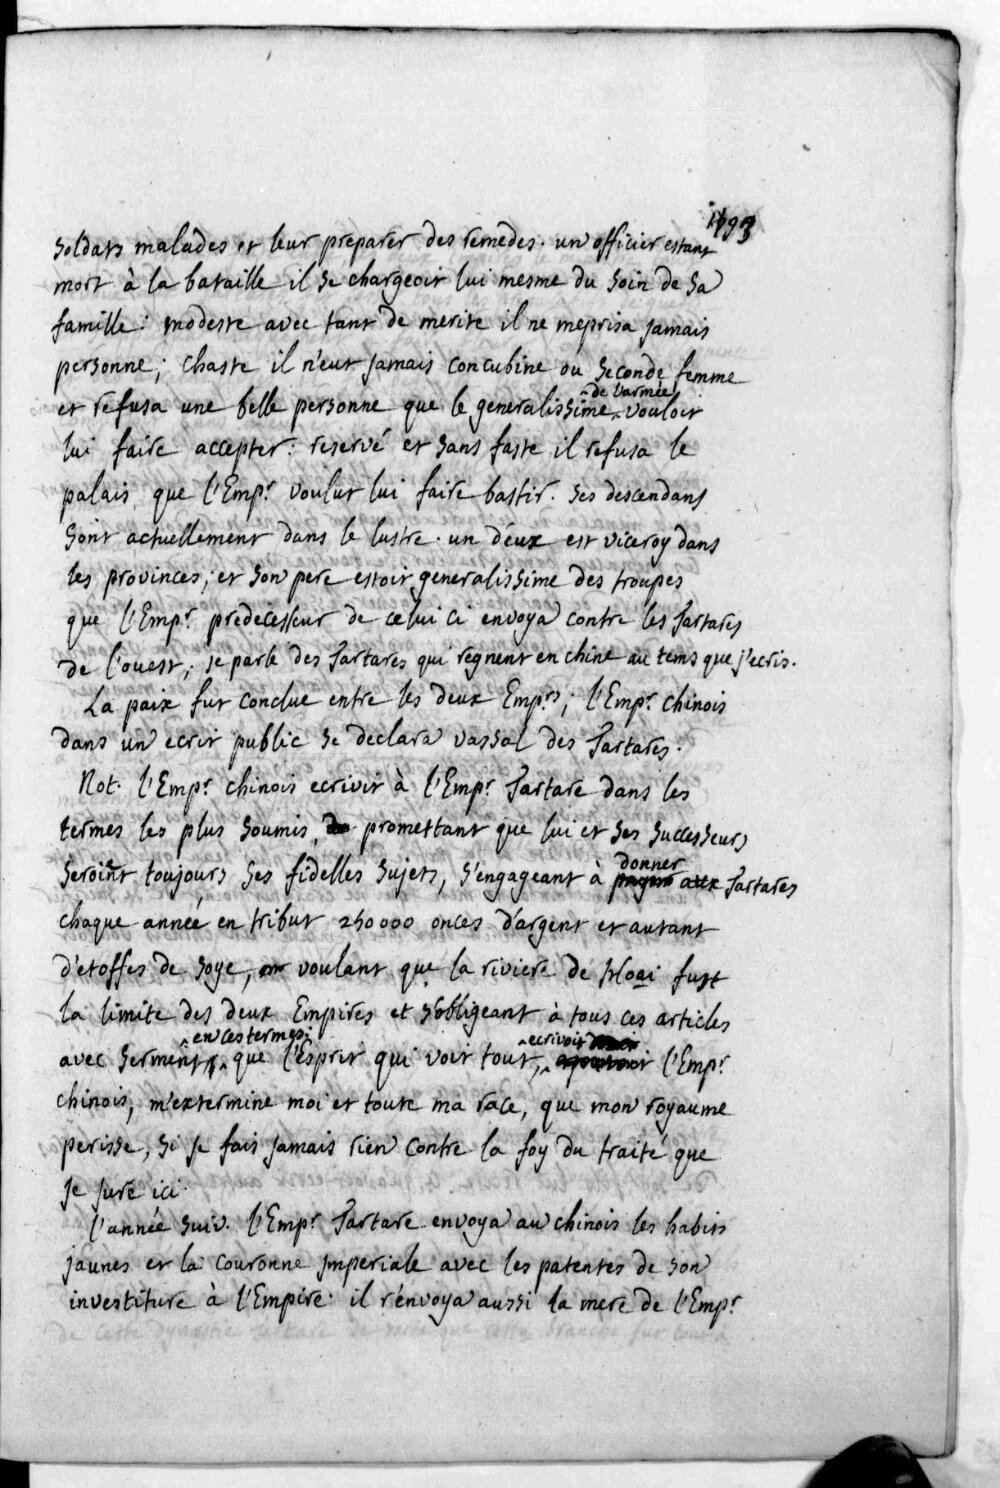 1793
soldats malades et leur preparer des remedes. un officier estant
mort à la bataille il se chargeoit lui mesme du soin de sa
famille: modeste avec tant de merite il ne meprisa jamais
personne; chaste il n'eut jamais concubine ou seconde femme
et refusa une belle personne que le generalissime de l'armée vouloit
lui faire accepter: reservé et sans faste il refusa le
palais que l'Empr. voulut lui faire bastir. ses descendans
sont actuellement dans le lustre. un d'eux est viceroy dans
les provinces; et son pere estoit generalissime des troupes
que l'Empr. predecesseur de celui ci envoya contre les Tartares
de l'ouest; je parle des Tartares qui regnent en chine au tems que j'ecris.
La paix fut conclue entre les deux Emprs; l'Empr. chinois
dans un ecrit public se declara vassal des Tartares.
Not. l'Empr. chinois ecrivit à l'Empr. Tartare dans les
termes les plus soumis, promettant que lui et ses successeurs
seroint toujours ses fidelles sujets, s'engageant à donner aux Tartares
chaque année en tribut 250000 onces d'argent et autant
d'etoffes de soye, voulant que la riviere de Hoai fust
la limite des deux Empires et s'obligeant à tous ces articles
avec serment en ces termes: que l'esprit qui voit tout, ecrivoit l'Empr.
chinois, m'extermine moi et toute ma race, que mon royaume
perisse, si je fais jamais rien contre la foy du traité que
je jure ici.
l'année suiv. l'Empr. Tartare envoya au chinois les habits
jaunes et la couronne imperiale avec les patentes de son
investiture à l'Empire: il renvoya aussi la mere de l'Empr.